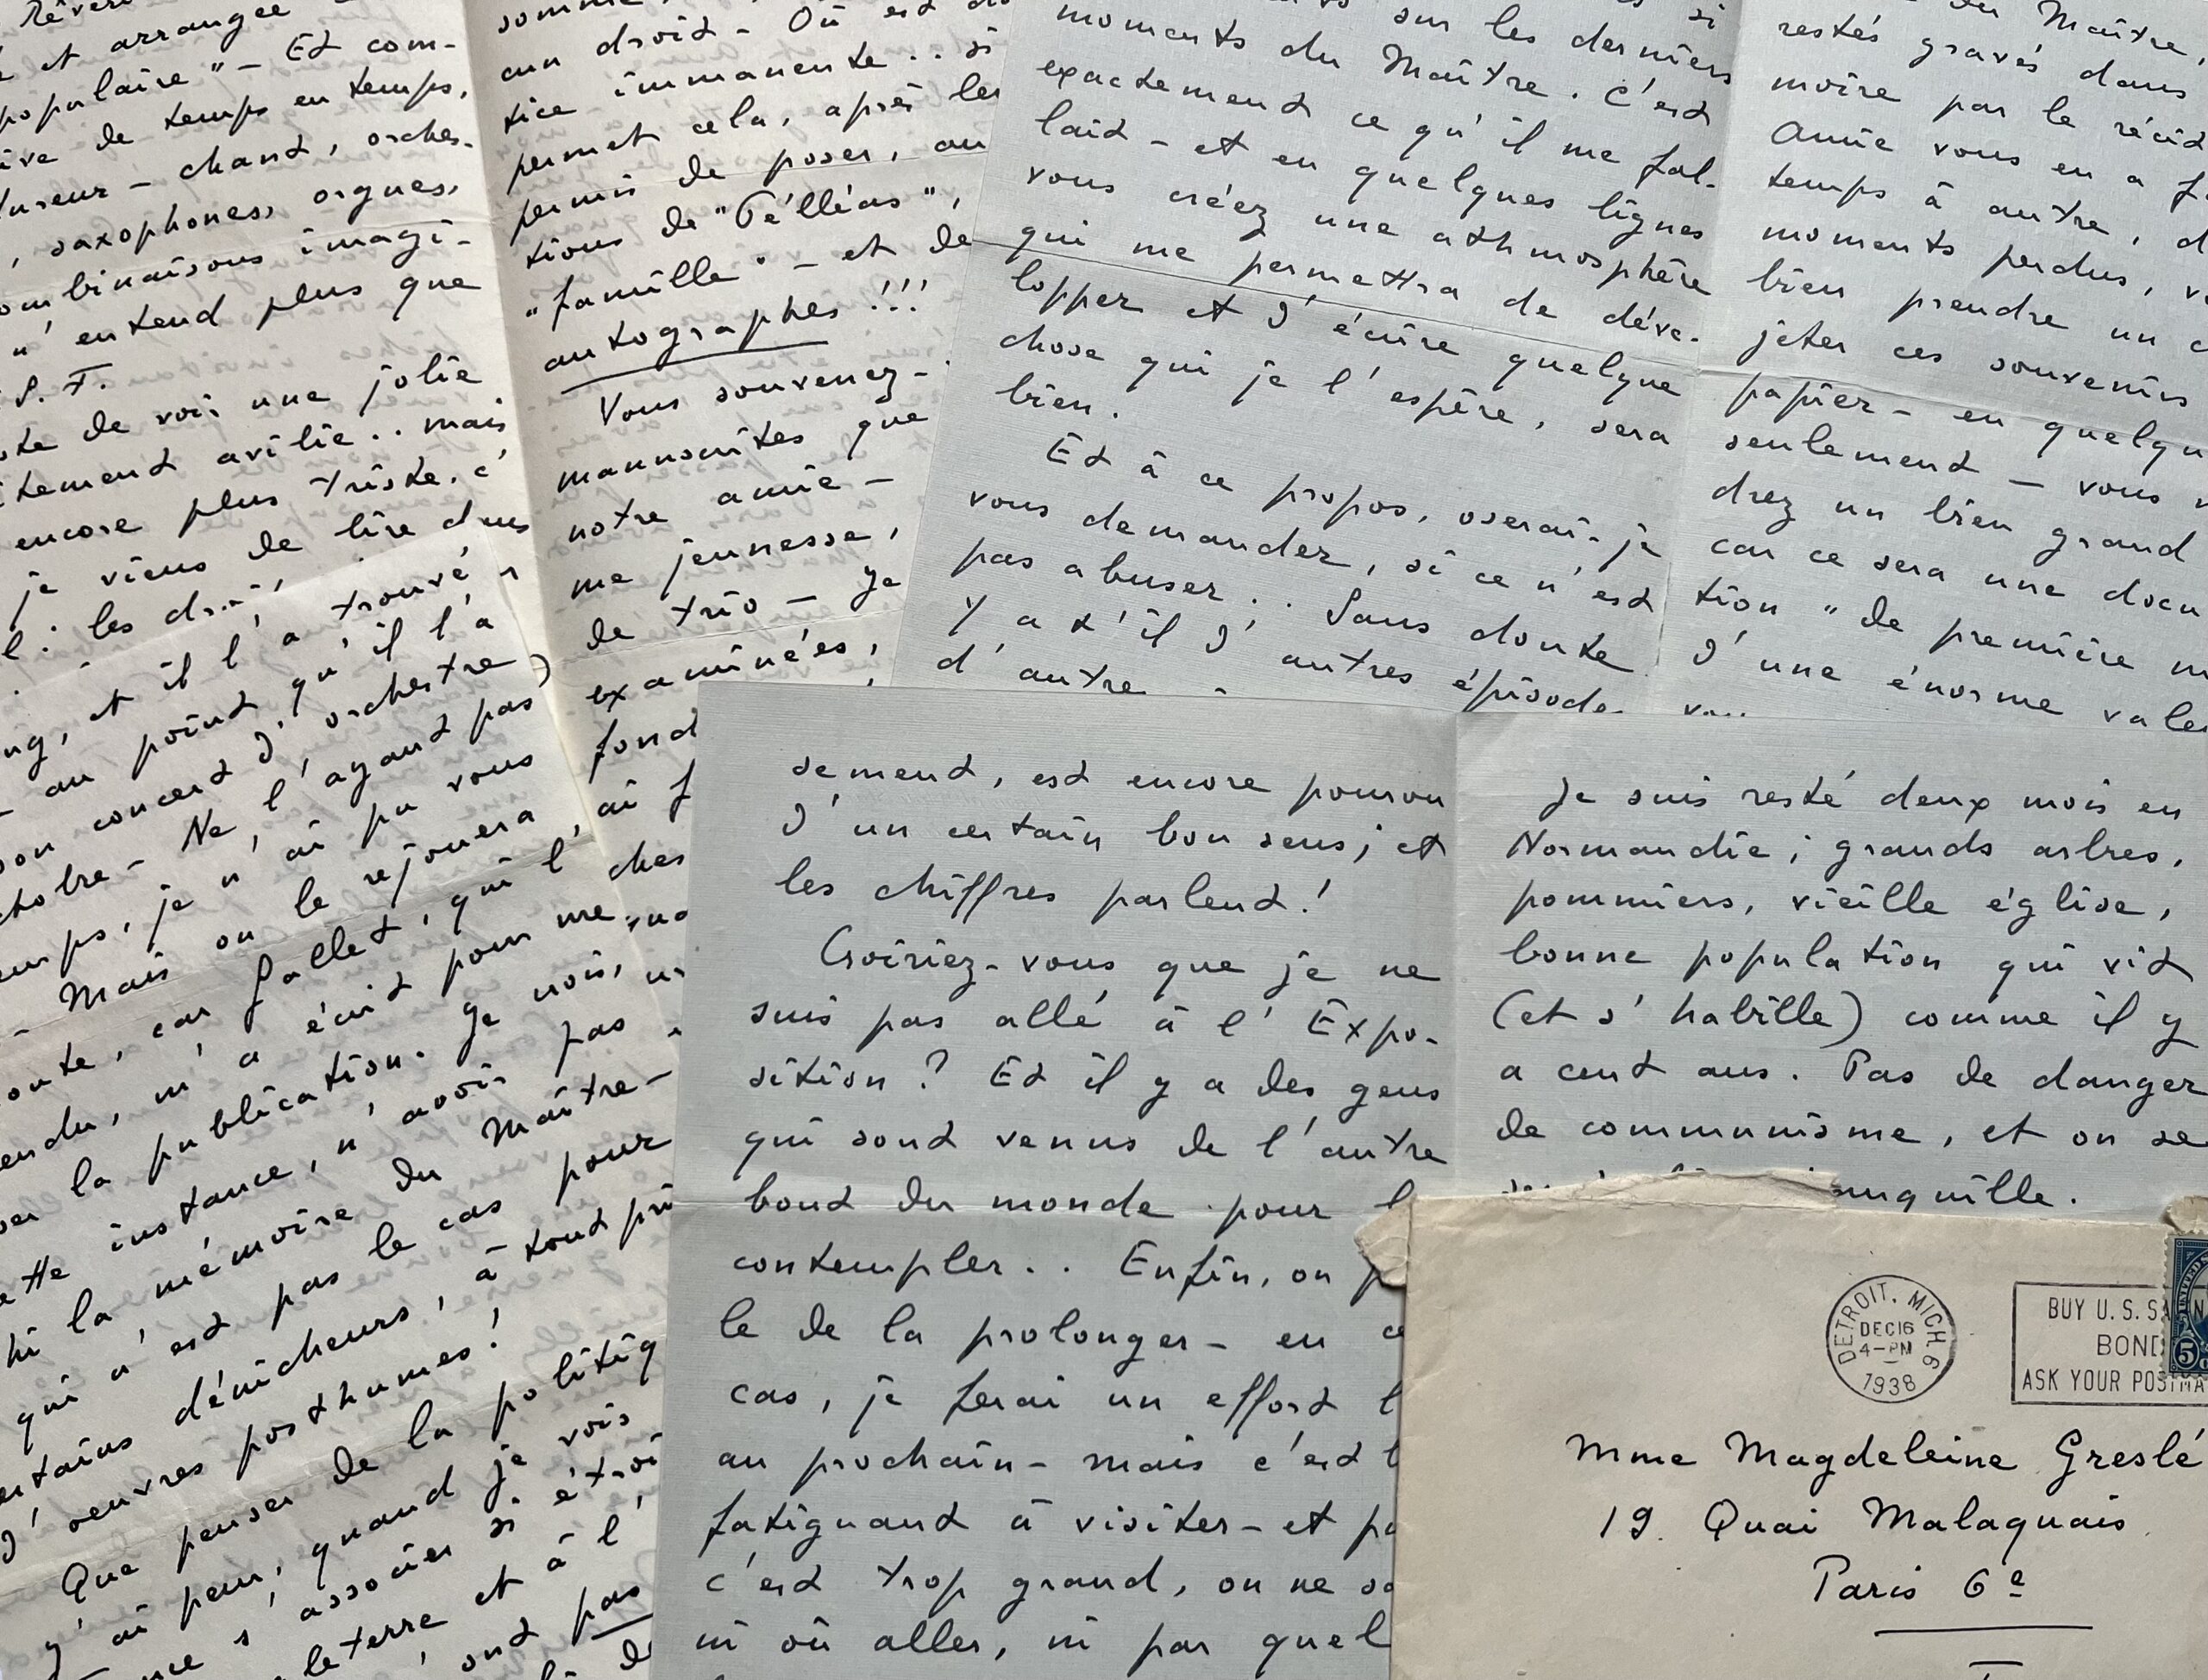 et arrangée
populaire" - Et com-
de temps en temps,
chant, orches-
saxophones, orgues,
imagi-
n'entend plus que
S. F.
de voir une jolie
avilie.. mais
encore plus triste. c'
je viens de lire dans
les
aun droit - Où est
tice immanente.. si
permet cela, après les
permis de poser, au
tions de "Pélléas",
"famille" - et de
autographes!!!
Vous souvenez-
manuscrites que
notre amie -
me jeunesse,
de trio - Je
examinées,
fond
ai
ches
moments sur les derniers
moments du Maître. C'est
exactement ce qu'il me fal-
lait - et en quelques lignes
vous créez une athmosphère
qui me permettra de déve-
lopper et d'écrire quelque
chose qui je l'espère, sera
bien.
Et à ce propos, oserai-je
vous demander, si ce n'est
pas abuser.. Sans doute
Y a t'il d'autres épisode
d'autre
du Maître,
restés gravés dans
moire par le récit
Amie vous en a f
temps à autre, d
moments perdus, v
bien prendre un c
jeter ces souvenirs
papier - en quelqu
seulement - vous
drez un bien grand
car ce sera une docu
tion "de première m
d'une énorme vale
et il l'a trouvé
au point qu'il l'a
son concert d'orchestre)
Ne l'ayant pas
je n'ai pu vous
Mais on le rejouera
car Gallet, qui l'
m'a écrit pour me
la publication. Je
instance, n'avoir pas
la mémoire du Maître -
qui n'est pas le cas pour
dénicheurs, à tout pri
d'oeuvres posthumes!
Que penser de la politiq
J'ai peur, quand je vois
s'associer si étroi
et à l'
ont pas
sement, est encore pourvu
d'un certain bon sens; et
les chiffres parlent!
Croiriez-vous que je ne
suis pas allé à l'Expo-
sition? Et il y a des gens
qui sont venus de l'autre
bout du monde pour l
contempler.. Enfin, on p
le de la prolonger - en c
cas, je ferai un effort l
au prochain - mais c'est t
fatiguant à visiter - et p
c'est trop grand, on ne s
ni où aller, ni par quel
Je suis resté deux mois en
Normandie; grands arbres,
pommiers, vieille église,
bonne population qui vit
(et s'habille) comme il y
a cent ans. Pas de danger
de communisme, et on se
anquille.
DETROIT, MICH. 6
DEC 16
4-PM
1938
BUY U. S. SA
BOND
ASK YOUR POSTMA
5
Mme Magdeleine Greslé
19. Quai Malaquais
Paris 6e